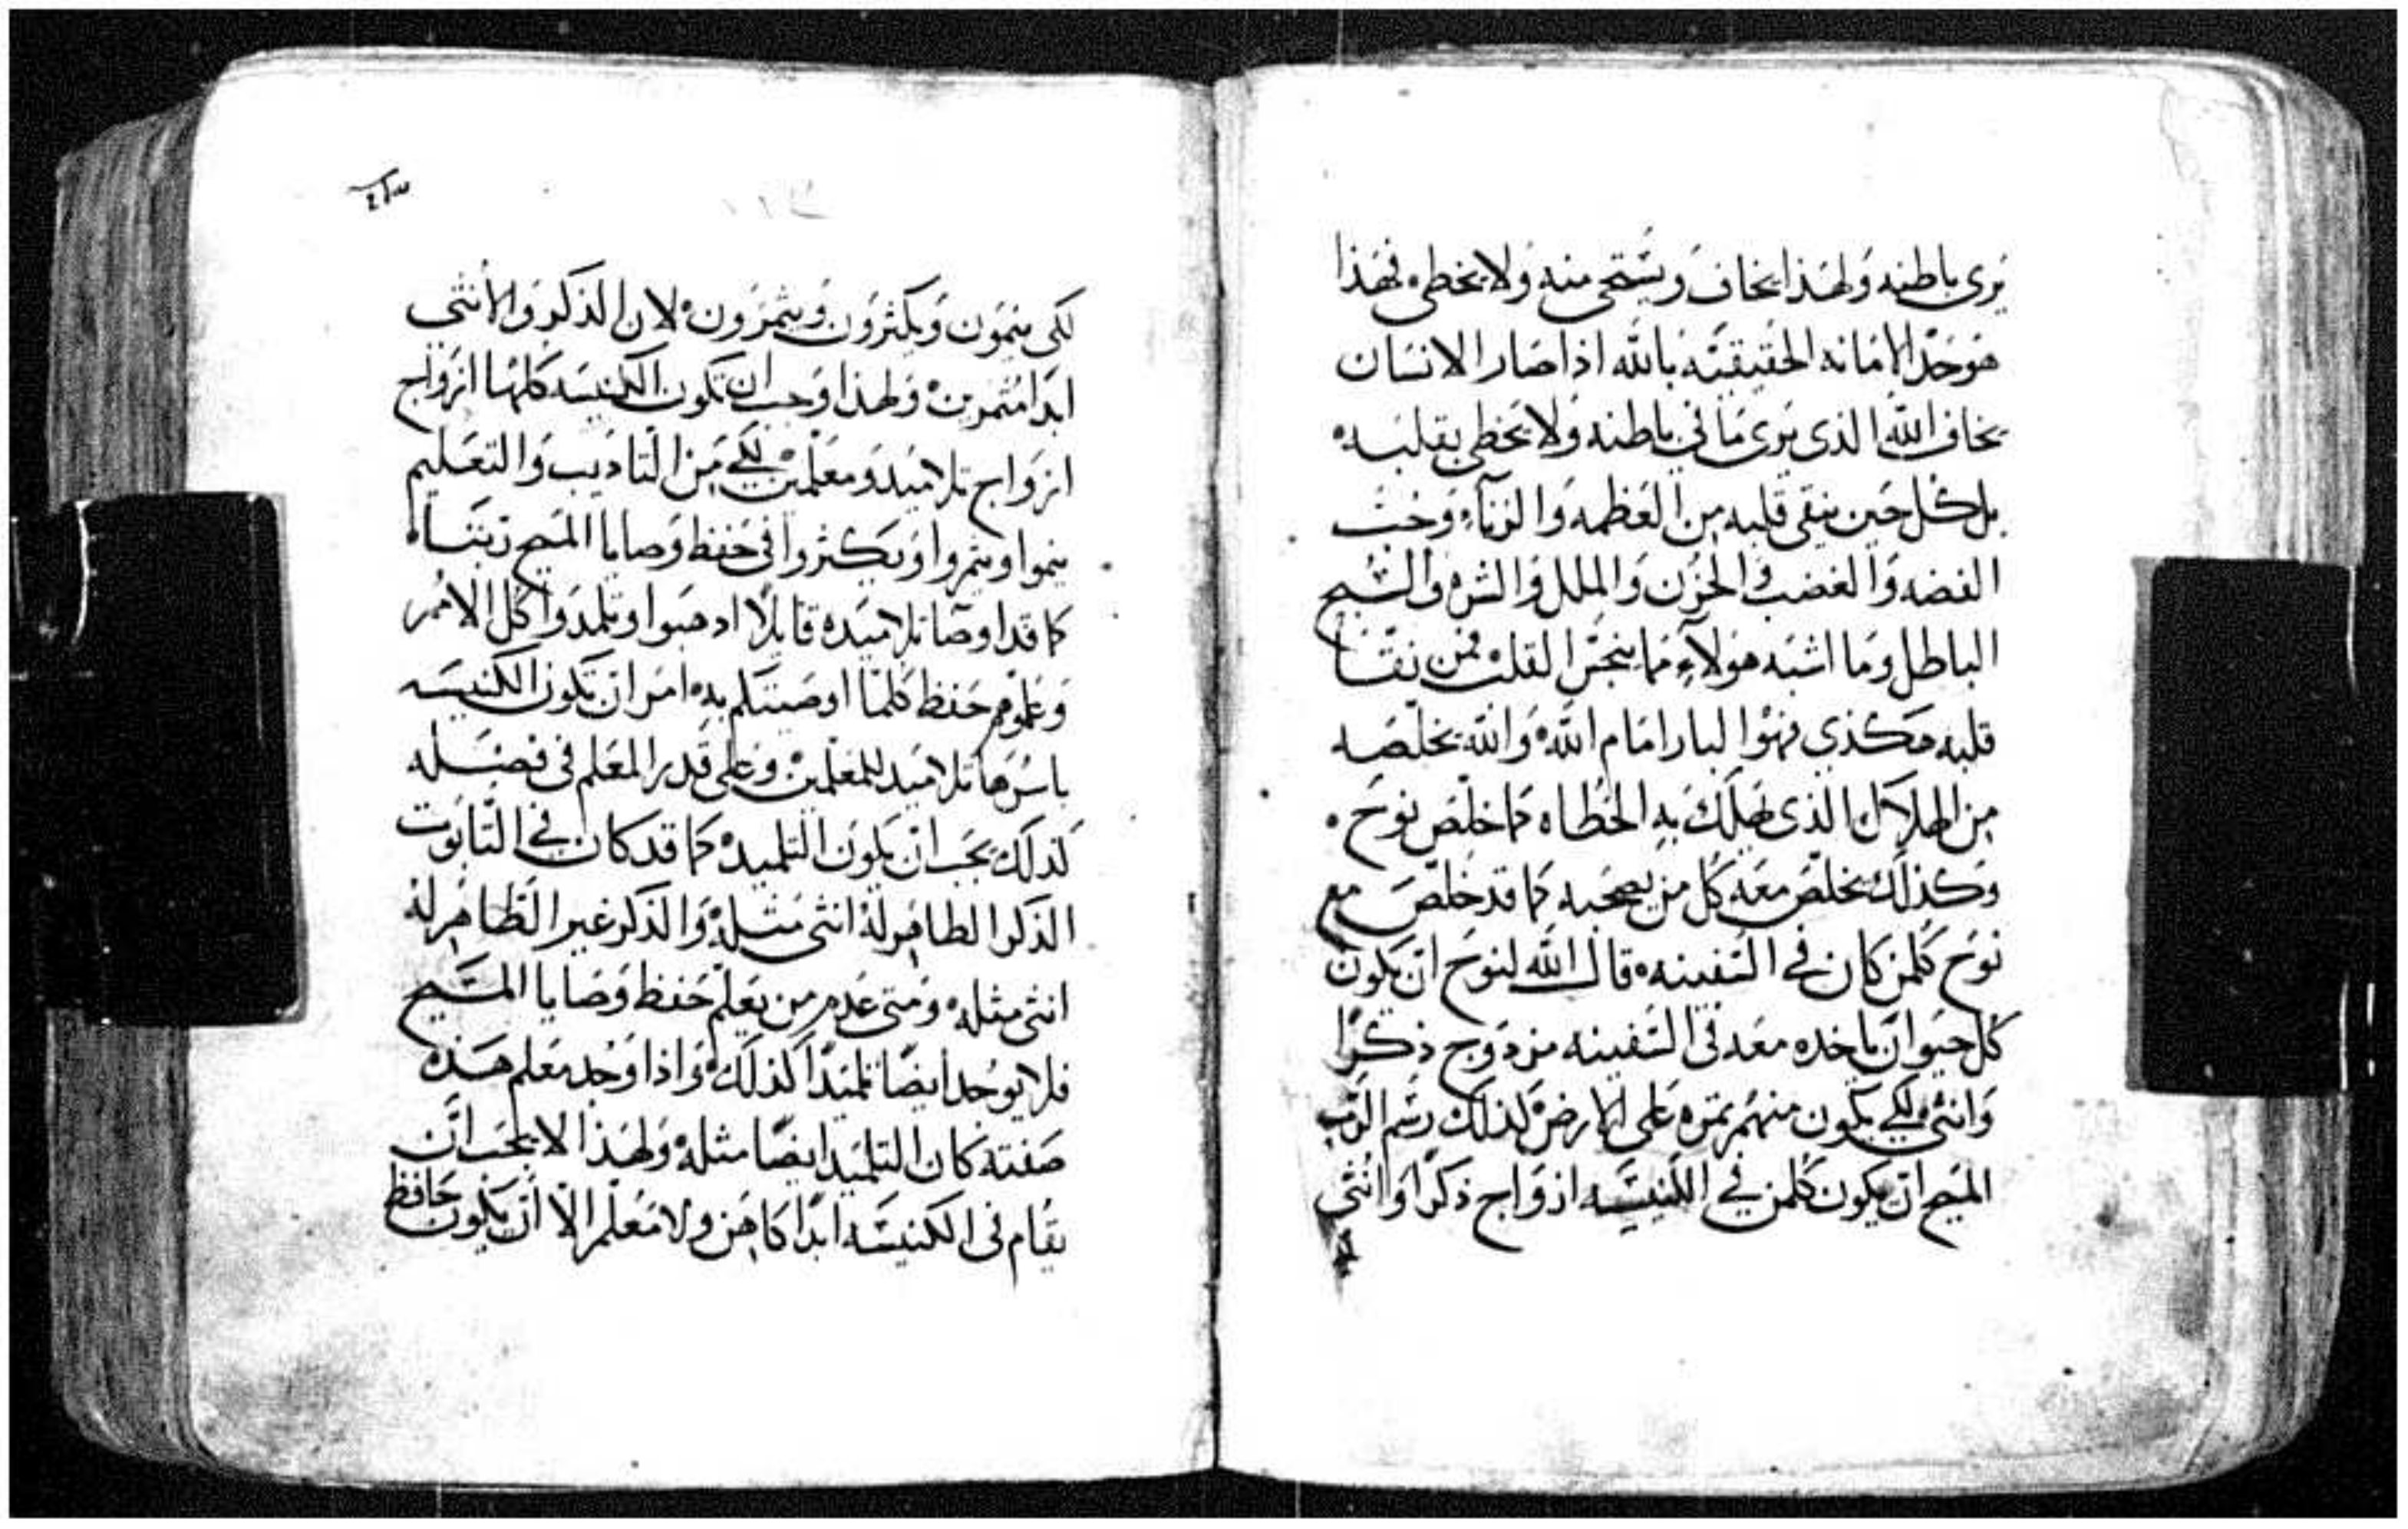 يرى باطنه ولهذا يخاف ويستحى منه ولا يخطى فهذا
هو حد الامانه الحقيقيه بالله اذا صار الانسان
يخاف الله الذى يرى ما في باطنه ولا يخطى بقلبه
بل كل حين ينقى قلبه من العظمه والزناء وحب
الفضه والغضب والحزن والملل والشره والسبح
الباطل وما اشبه هولاء مما ينجس القلب فمن نقّا
قلبه هكذى فهوا البار امام الله والله يخلصه
من الهلاك الذى يهلك به الخطاه كما خلص نوح
وكذلك يخلص معه كل من يصحبه كما قد خلص مع
نوح كلمن كان في السفينه قال الله لنوح ان يكون
كل حيوان ياخده معه في السفينه مزدوج ذكرًا
وانثى لكى يكون منهم ثمره على الارض لذلك رسم الرب
المسيح ان يكون كلمن في الكنيسه ازواج ذكرًا وانثى
لكى ينمون ويكثرون ويثمرون لان الذكر والانثى
ابدا مثمرين ولهذا وجب ان تكون الكنيسه كلها ازواج
ازواج تلاميد ومعلمين لكى من التاديب والتعليم
ينموا ويثمروا ويكثروا في حفظ وصايا المسيح ربنا
كما قد اوصا تلاميده قايلًا ادهبوا وتلمدوا كل الامم
وعلموهم حفظ كلما اوصيتكم به امر ان تكون الكنيسه
باسرها تلاميد للمعلمين وعلى قدر المعلم في فضله
كذلك يجب ان يكون التلميد كما قد كان في التابوت
الذكر الطاهر له انثى مثله والذكر غير الطاهر له
انثى مثله ومتى عدم من يعلم حفظ وصايا المسيح
فلا يوجد ايضًا تلميدًا كذلك واذا وجد معلم هذه
صفته كان التلميد ايضًا مثله ولهذا لا يجب ان
يقام في الكنيسه ابدًا كاهن ولا معلم الا ان يكون حافظ